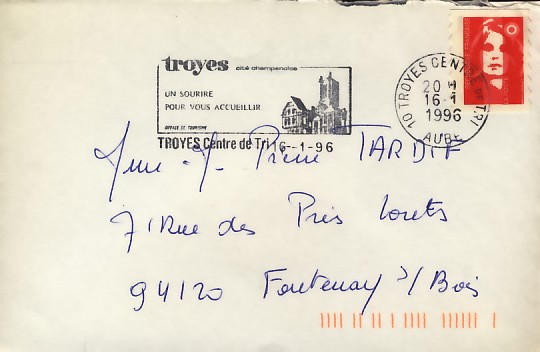 troyes cité champenoise
UN SOURIRE
POUR VOUS ACCUEILLIR
OFFICE DE TOURISME
TROYES Centre de Tri 16-1-96
10 TROYES CENTRE DE TRI
20 H
16-1
1996
AUBE
Mme J. Pierre TARDIF
7 Rue des Prés Lorets
94120 Fontenay s/Bois